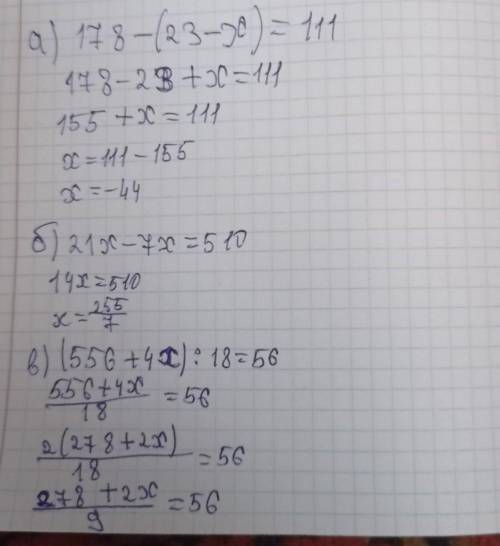 а) 178-(23-x)=111
178-23+x=111
155+x=111
x=111-155
x=-44
б) 21x-7x=510
14x=510
x=255/7
в) (556+4x):18=56
(556+4x)/18=56
2(278+2x)/18=56
(278+2x)/9=56